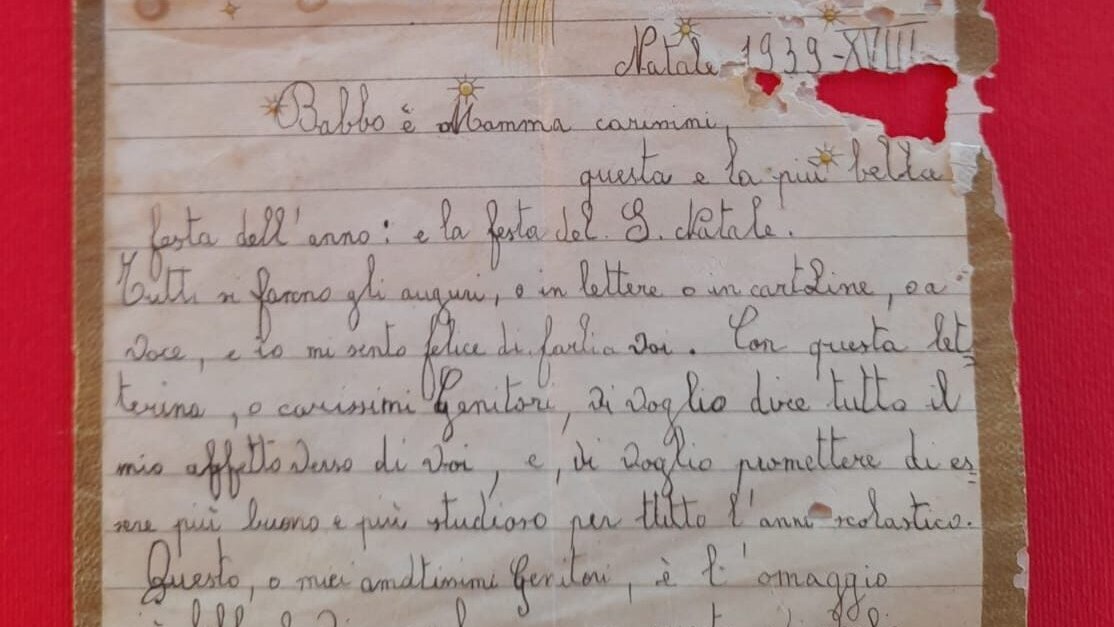 Natale 1939-XVIII
Babbo è Mamma carimmi,
questa e la più bella
festa dell' anno: e la festa del. S. Natale.
Tutti si fanno gli auguri, o in lettere o in cartoline, o a
voce, e io mi sento felice di farlia voi. Con questa let=
terina, o carissimi Genitori, vi voglio dire tutto il
mio affetto verso di voi, e, vi voglio promettere di es=
sere più buono e più studioso per tutto l'anni scolastico.
Questo, o miei amatinimi Genitori, è l' omaggio